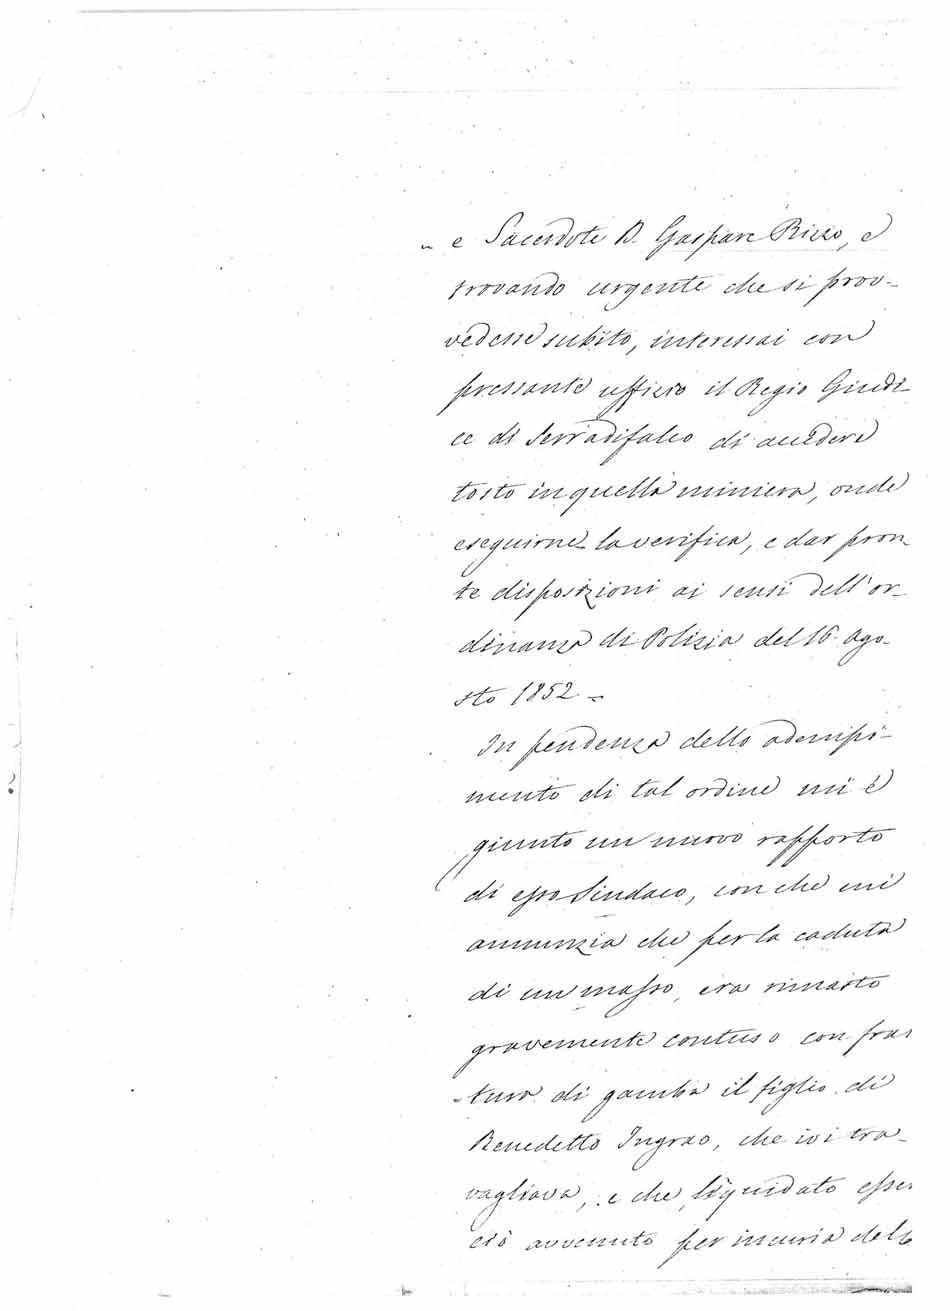 e Sacerdote D. Gaspare Rizzo, e
trovando urgente che si prov-
vedesse subito, interessai con
pressante uffizio il Regio Giudi-
ce di Serradifalco di accedere
tosto in quella miniera, onde
eseguirne la verifica, e dar pron-
te disposizioni ai sensi dell'or-
dinanza di Polizia del 16 Ago-
sto 1852 -
In pendenza dello adempi-
mento di tal ordine mi è
giunto un nuovo rapporto
di esso Sindaco, con che mi
annunzia che per la caduta
di un masso, era rimasto
gravemente contuso con frat
tura di gamba il figlio di
Benedetto Ingrao, che ivi tra-
vagliava, e che, liquidato esser
ciò avvenuto per incuria dello